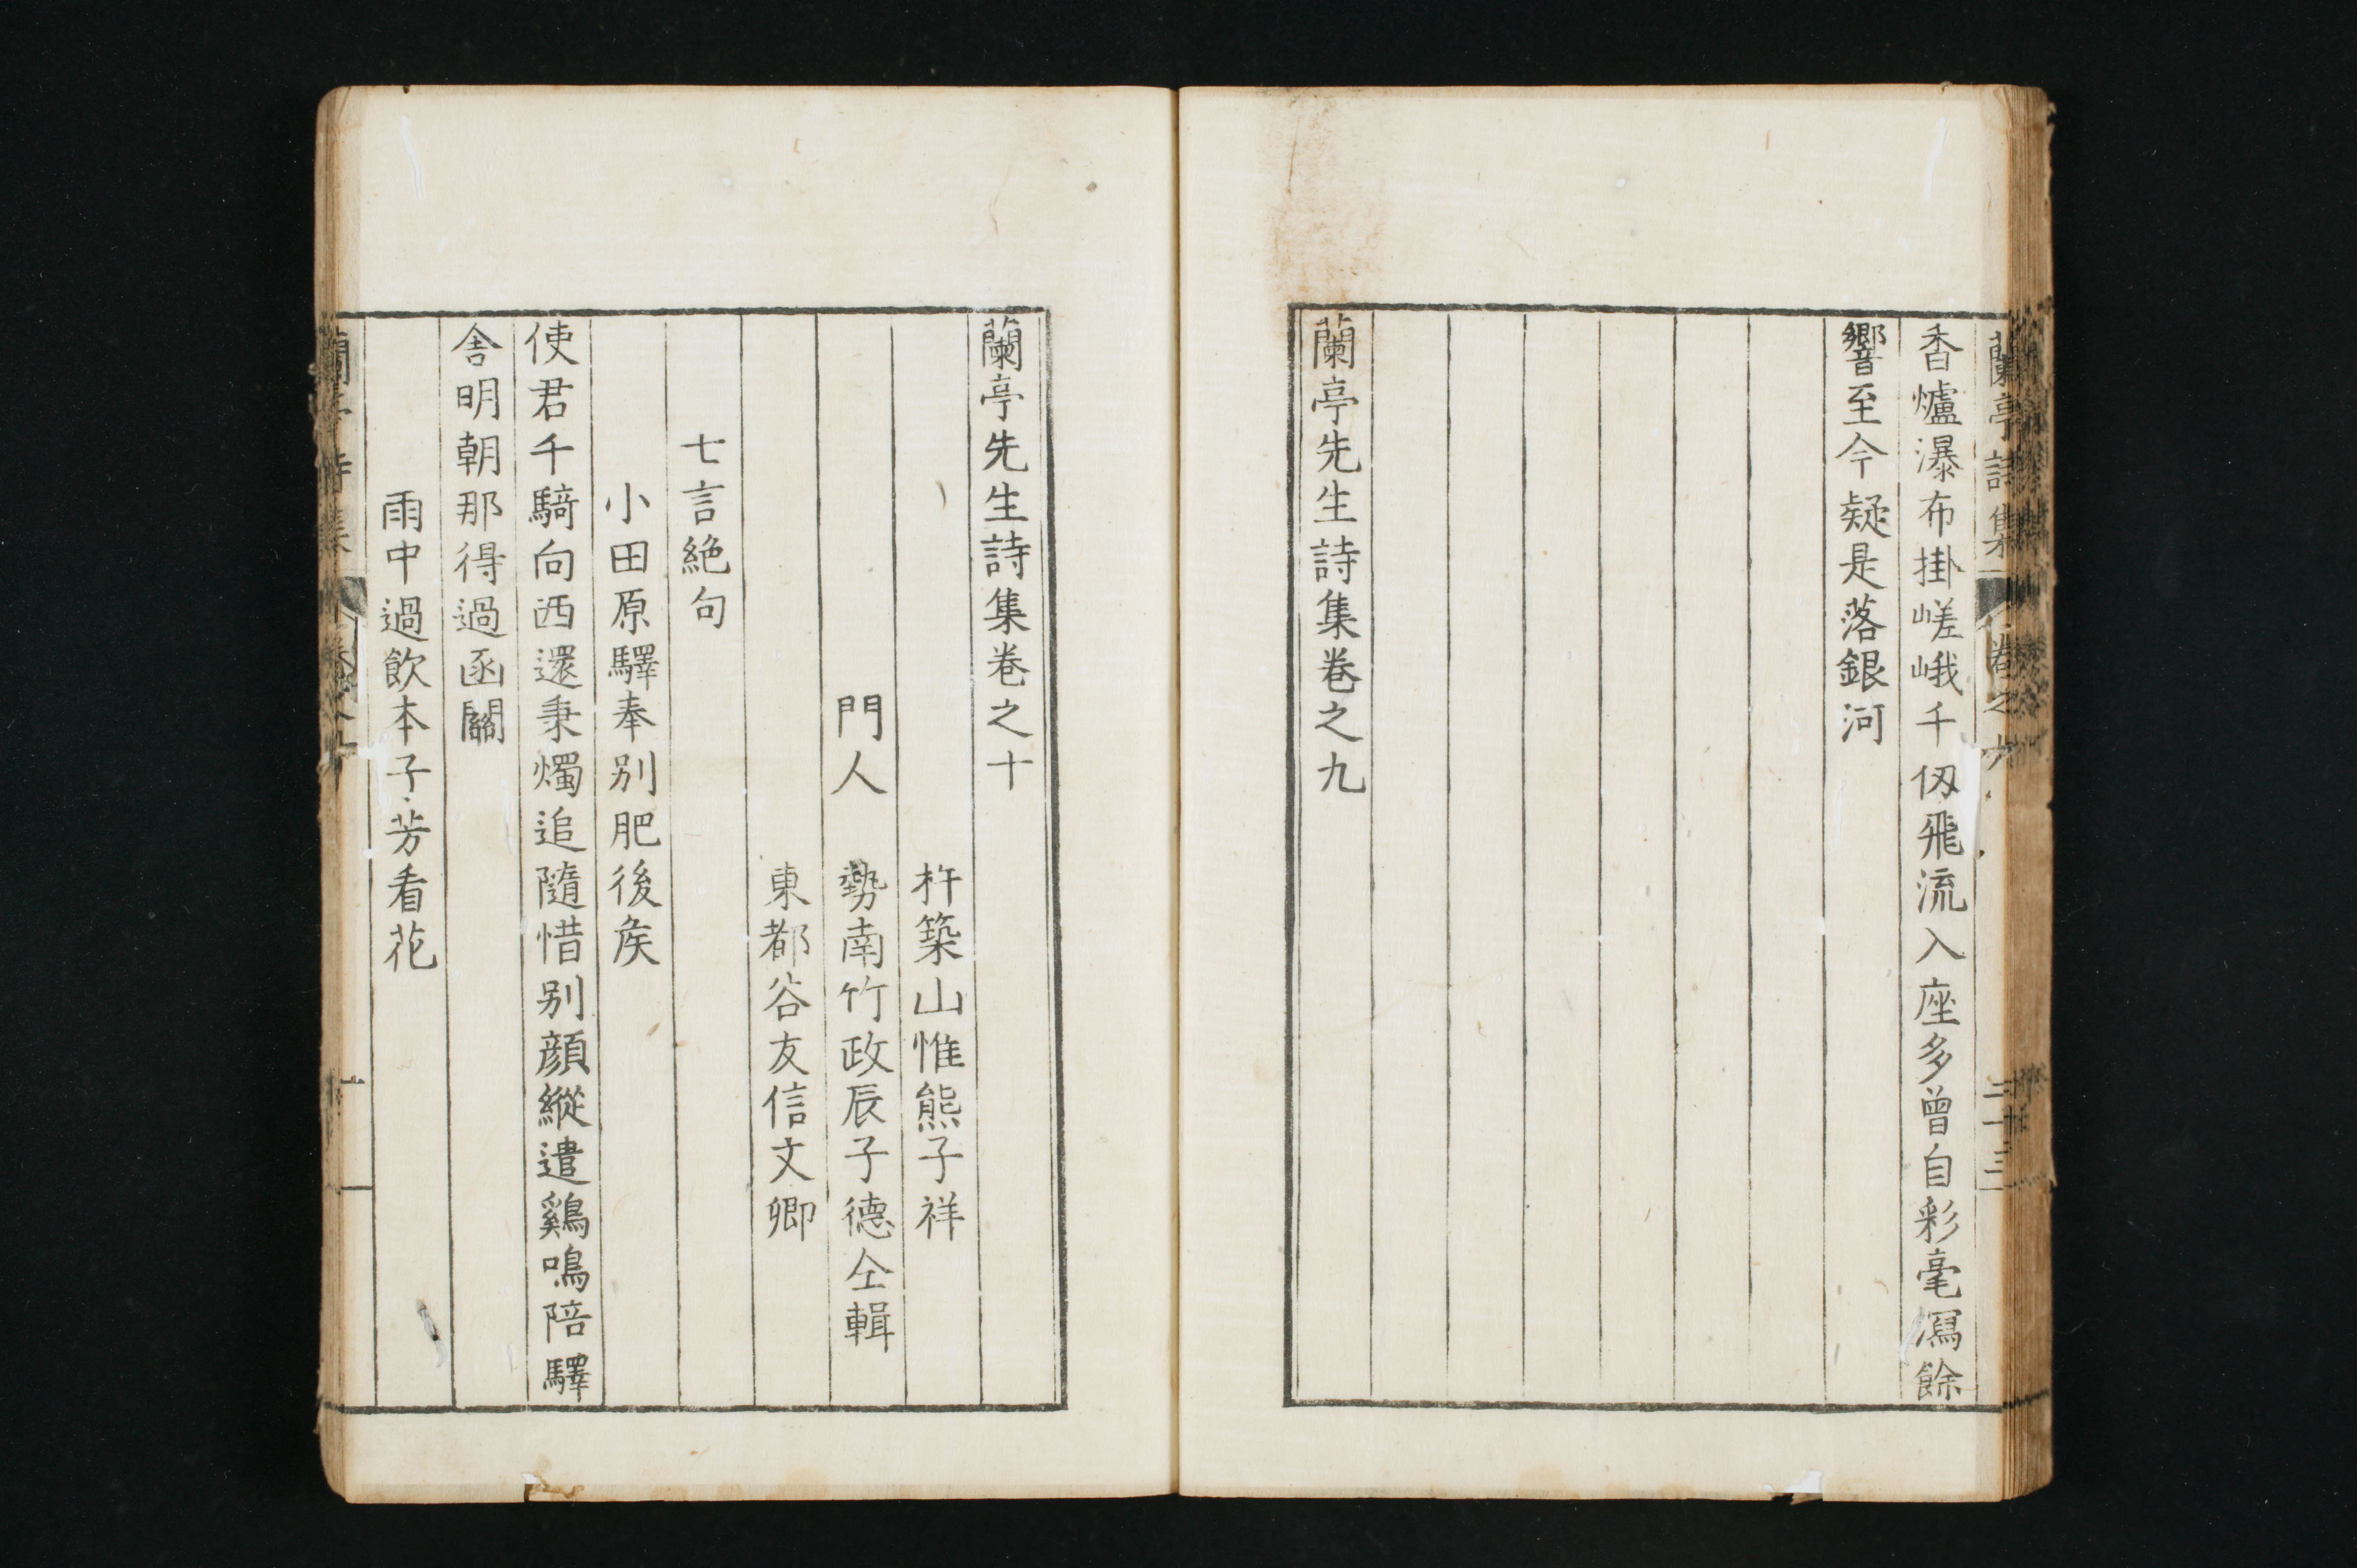 蘭亭詩集 卷之九 二十三
香爐瀑布掛嵯峨千仭飛流入座多曾自彩毫瀉餘
響至今疑是落銀河
蘭亭先生詩集卷之九
蘭亭先生詩集卷之十
杵築山惟熊子祥
門人 勢南竹政辰子德仝輯
東都谷友信文卿
七言絶句
小田原驛奉別肥後矦
使君千騎向西還秉燭追隨惜別顔縱遣鷄鳴陪驛
舎明朝那得過函關
雨中過飲本子芳看花